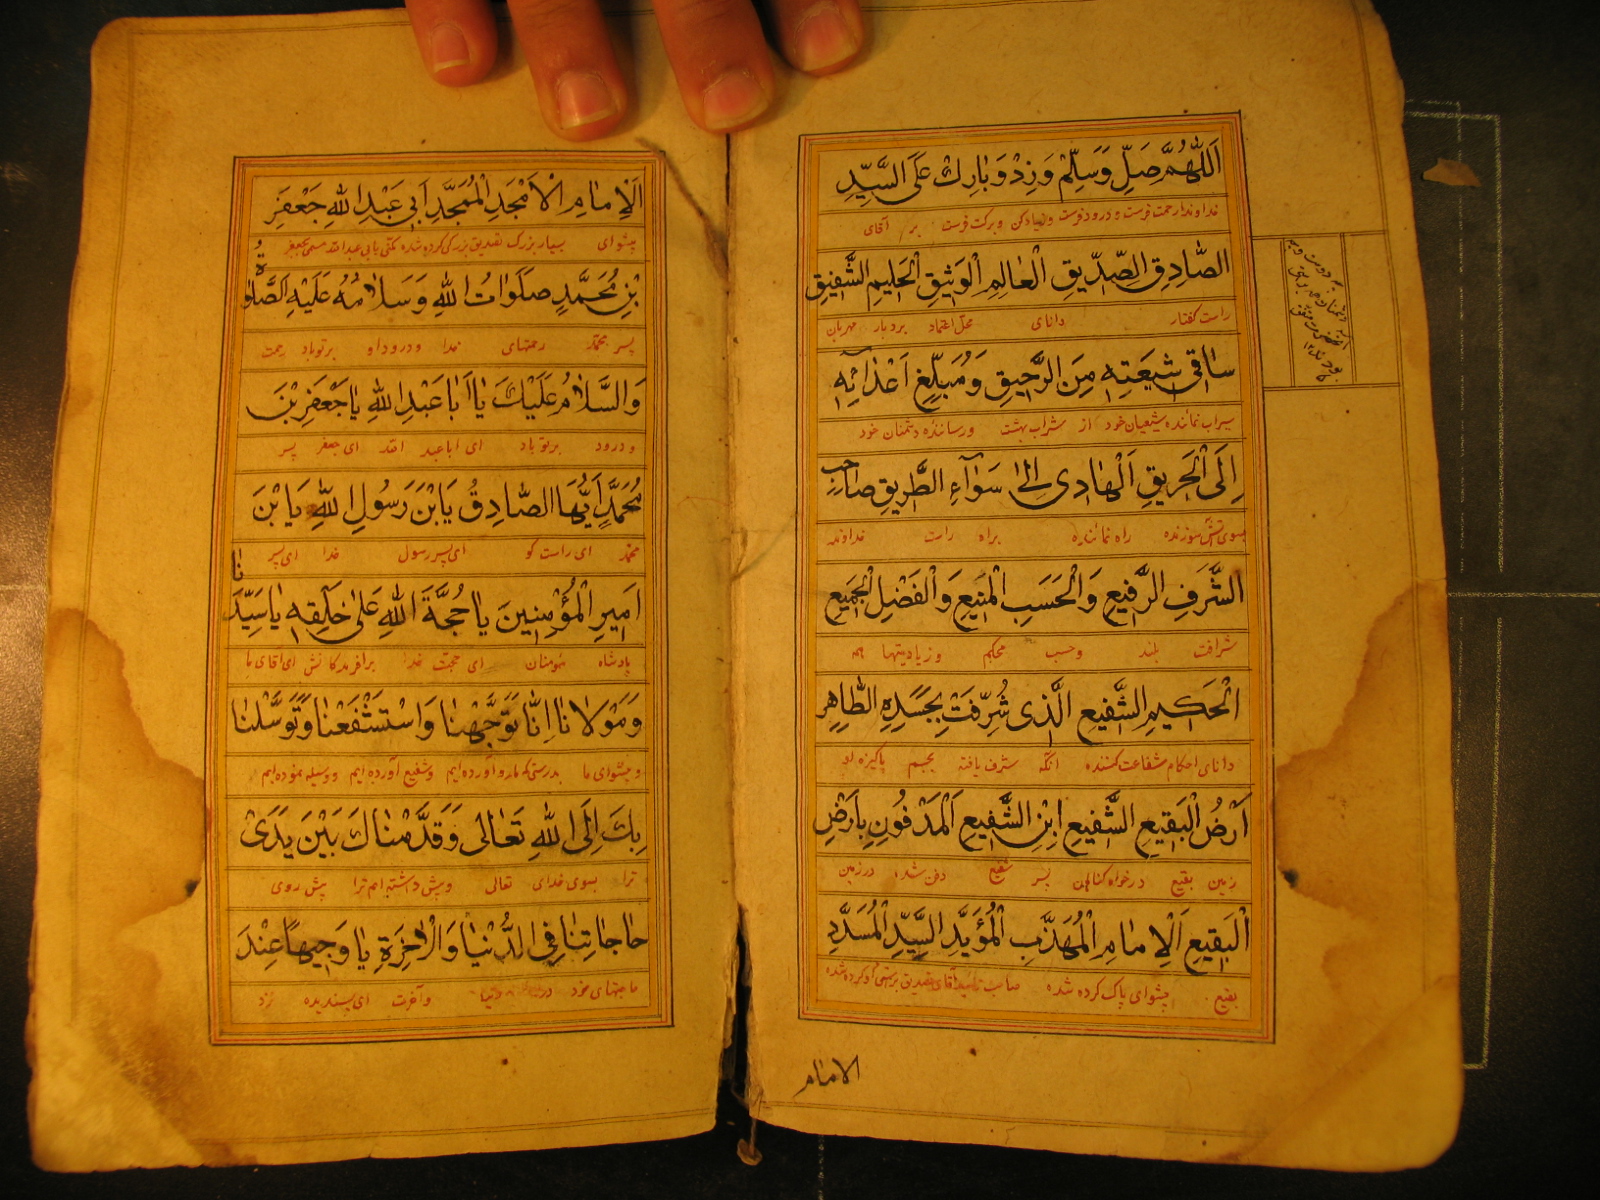 اَللّٰهُمَّ صَلِّ وَسَلِّمْ وَزِدْ وَبٰارِكْ عَلَى السَّيِّدِ
خداوندا رحمت فرست و درود فرست و زیاد کن و برکت فرست بر آقای
الصّٰادِقِ الصِّدّيقِ الْعٰالِمِ الْوَثيقِ الْحَليمِ الشَّفيقِ
راست کفتار دانای محل اعتماد بردبار مهربان
سٰاقى شيعَتِهِ مِنَ الرَّحيقِ وَمُبَلِّغِ اَعْدٰائِهِ
سیراب نماننده شیعیان خود از شراب بهشت و رساننده دشمنان خود
اِلَى الْحَريقِ اَلْهٰادى اِلىٰ سَوٰاءِ الطَّريقِ صٰاحِبِ
بسوی آتش سوزنده راه نماینده براه راست خداوند
الشَّرَفِ الرَّفيعِ وَالْحَسَبِ الْمَنيعِ وَالْفَضْلِ الْجَميعِ
شرافت بلند و حسب محکم و زیادیتها همه
الْحَكيمِ الشَّفيعِ الَّذى شُرِّفَتْ بِجَسَدِهِ الطّٰاهِرِ
دانای احکام شفاعت کننده آنکه شرف یافته بجسم پاکیزه او
اَرْضُ الْبَقيعِ الشَّفيعِ ابْنِ الشَّفيعِ اَلْمَدْفُونِ بِاَرْضِ
زمین بقیع پسر شفیع دفن شده در زمین
الْبَقيعِ اَلْاِمٰامِ الْمُهَذَّبِ الْمُؤَيَّدِ السَّيِّدِ الْمُسَدَّدِ
بقیع پیشوای پاک کرده شده
الامام
اَلْاِمٰامِ الْاَمْجَدِ الْمُمَجَّدِ اَبى عَبْدِ اللهِ جَعْفَرِ
پیشوای بسیار بزرگ بتصدیق بزرگی کرده شده مکنی بابی عبدالله مسمی بجعفر
بْنِ مُحَمَّدٍ صَلَوٰاتُ اللهِ وَسَلٰامُهُ عَلَيْهِ اَلصَّلٰوةُ
پسر محمد رحمتهای خدا و درود او بر تو باد رحمت
وَالسَّلٰامُ عَلَيْكَ يٰا اَبٰا عَبْدِ اللهِ يٰا جَعْفَرَ بْنَ
و درود بر تو باد ای اباعبد الله ای جعفر پسر
مُحَمَّدٍ اَيُّهَا الصّٰادِقُ يَا بْنَ رَسُولِ اللهِ يَا بْنَ
محمد ای راست کو ای پسر رسول خدا ای پسر
اَميرِ الْمُؤْمِنينَ يٰا حُجَّةَ اللهِ عَلىٰ خَلْقِهِ يٰا سَيِّدَنٰا
پادشاه مؤمنان ای حجت خدا بر افریدکانش ای اقای ما
وَمَوْلٰانٰا اِنّٰا تَوَجَّهْنٰا وَاسْتَشْفَعْنٰا وَتَوَسَّلْنٰا
و پیشوای ما بدرستی که ما رو آورده ایم و شفیع آورده ایم و وسیله نموده ایم
بِكَ اِلَى اللهِ تَعٰالى وَقَدَّمْنٰاكَ بَيْنَ يَدَىْ
ترا بسوی خدای تعالی و پیش داشته ایم ترا پیش روی
حٰاجٰاتِنٰا فِى الدُّنْيٰا وَالْاٰخِرَةِ يٰا وَجيهًا عِنْدَ
حاجتهای خود در دنیا و آخرت ای پسندیده نزد